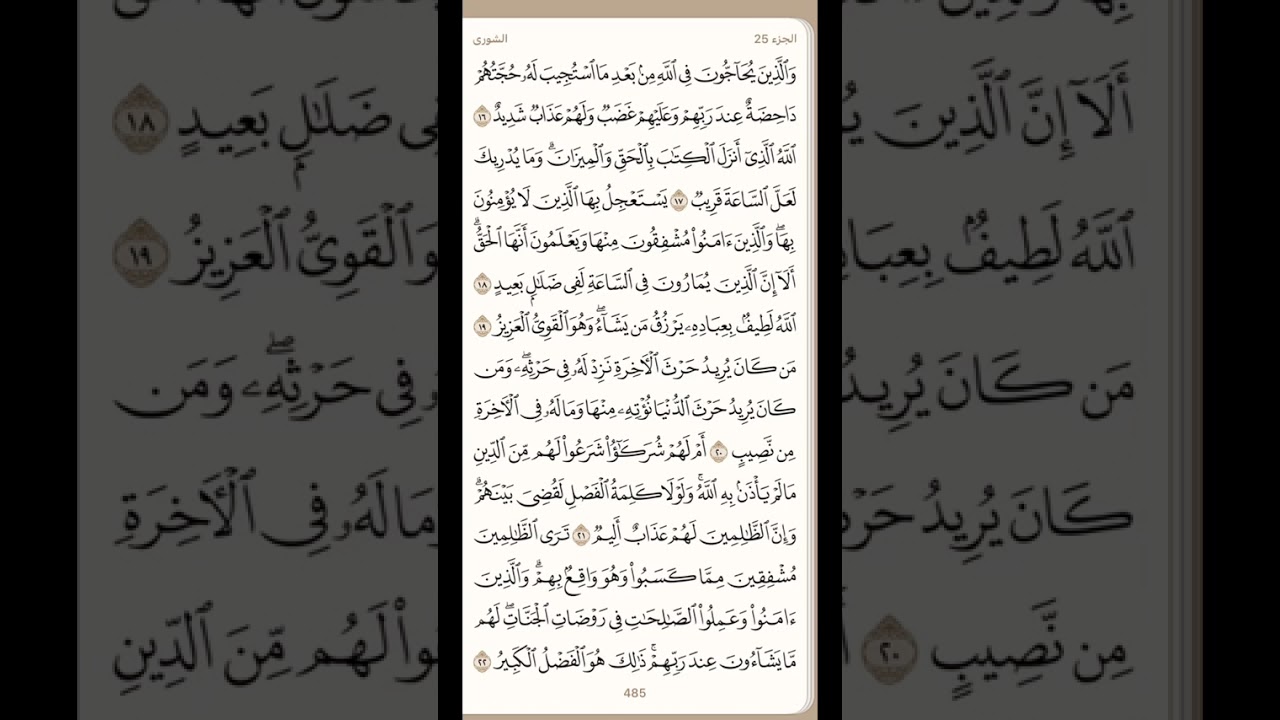 الجزء 25
الشورى
وَٱلَّذِينَ يُحَآجُّونَ فِى ٱللَّهِ مِنۢ بَعْدِ مَا ٱسْتُجِيبَ لَهُۥ حُجَّتُهُمْ
دَاحِضَةٌ عِندَ رَبِّهِمْ وَعَلَيْهِمْ غَضَبٌ وَلَهُمْ عَذَابٌ شَدِيدٌ ١٦
ٱللَّهُ ٱلَّذِىٓ أَنزَلَ ٱلْكِتَٰبَ بِٱلْحَقِّ وَٱلْمِيزَانَ ۗ وَمَا يُدْرِيكَ
لَعَلَّ ٱلسَّاعَةَ قَرِيبٌ ١٧ يَسْتَعْجِلُ بِهَا ٱلَّذِينَ لَا يُؤْمِنُونَ
بِهَا ۖ وَٱلَّذِينَ ءَامَنُوا۟ مُشْفِقُونَ مِنْهَا وَيَعْلَمُونَ أَنَّهَا ٱلْحَقُّ ۗ
أَلَآ إِنَّ ٱلَّذِينَ يُمَارُونَ فِى ٱلسَّاعَةِ لَفِى ضَلَٰلٍۭ بَعِيدٍ ١٨
ٱللَّهُ لَطِيفٌۢ بِعِبَادِهِۦ يَرْزُقُ مَن يَشَآءُ ۖ وَهُوَ ٱلْقَوِىُّ ٱلْعَزِيزُ ١٩
مَن كَانَ يُرِيدُ حَرْثَ ٱلْـَٔاخِرَةِ نَزِدْ لَهُۥ فِى حَرْثِهِۦ ۖ وَمَن
كَانَ يُرِيدُ حَرْثَ ٱلدُّنْيَا نُؤْتِهِۦ مِنْهَا وَمَا لَهُۥ فِى ٱلْـَٔاخِرَةِ
مِن نَّصِيبٍ ٢٠ أَمْ لَهُمْ شُرَكَٰٓؤُا۟ شَرَعُوا۟ لَهُم مِّنَ ٱلدِّينِ
مَا لَمْ يَأْذَنۢ بِهِ ٱللَّهُ ۚ وَلَوْلَا كَلِمَةُ ٱلْفَصْلِ لَقُضِىَ بَيْنَهُمْ ۗ
وَإِنَّ ٱلظَّٰلِمِينَ لَهُمْ عَذَابٌ أَلِيمٌ ٢١ تَرَى ٱلظَّٰلِمِينَ
مُشْفِقِينَ مِمَّا كَسَبُوا۟ وَهُوَ وَاقِعٌۢ بِهِمْ ۗ وَٱلَّذِينَ
ءَامَنُوا۟ وَعَمِلُوا۟ ٱلصَّٰلِحَٰتِ فِى رَوْضَاتِ ٱلْجَنَّاتِ ۖ لَهُم
مَّا يَشَآءُونَ عِندَ رَبِّهِمْ ۚ ذَٰلِكَ هُوَ ٱلْفَضْلُ ٱلْكَبِيرُ ٢٢
485